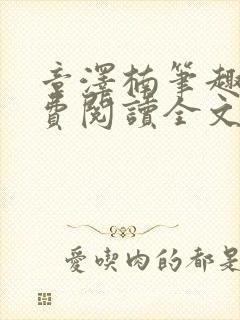 音澤楠筆趣
費閱讀全文
愛喫肉的都是